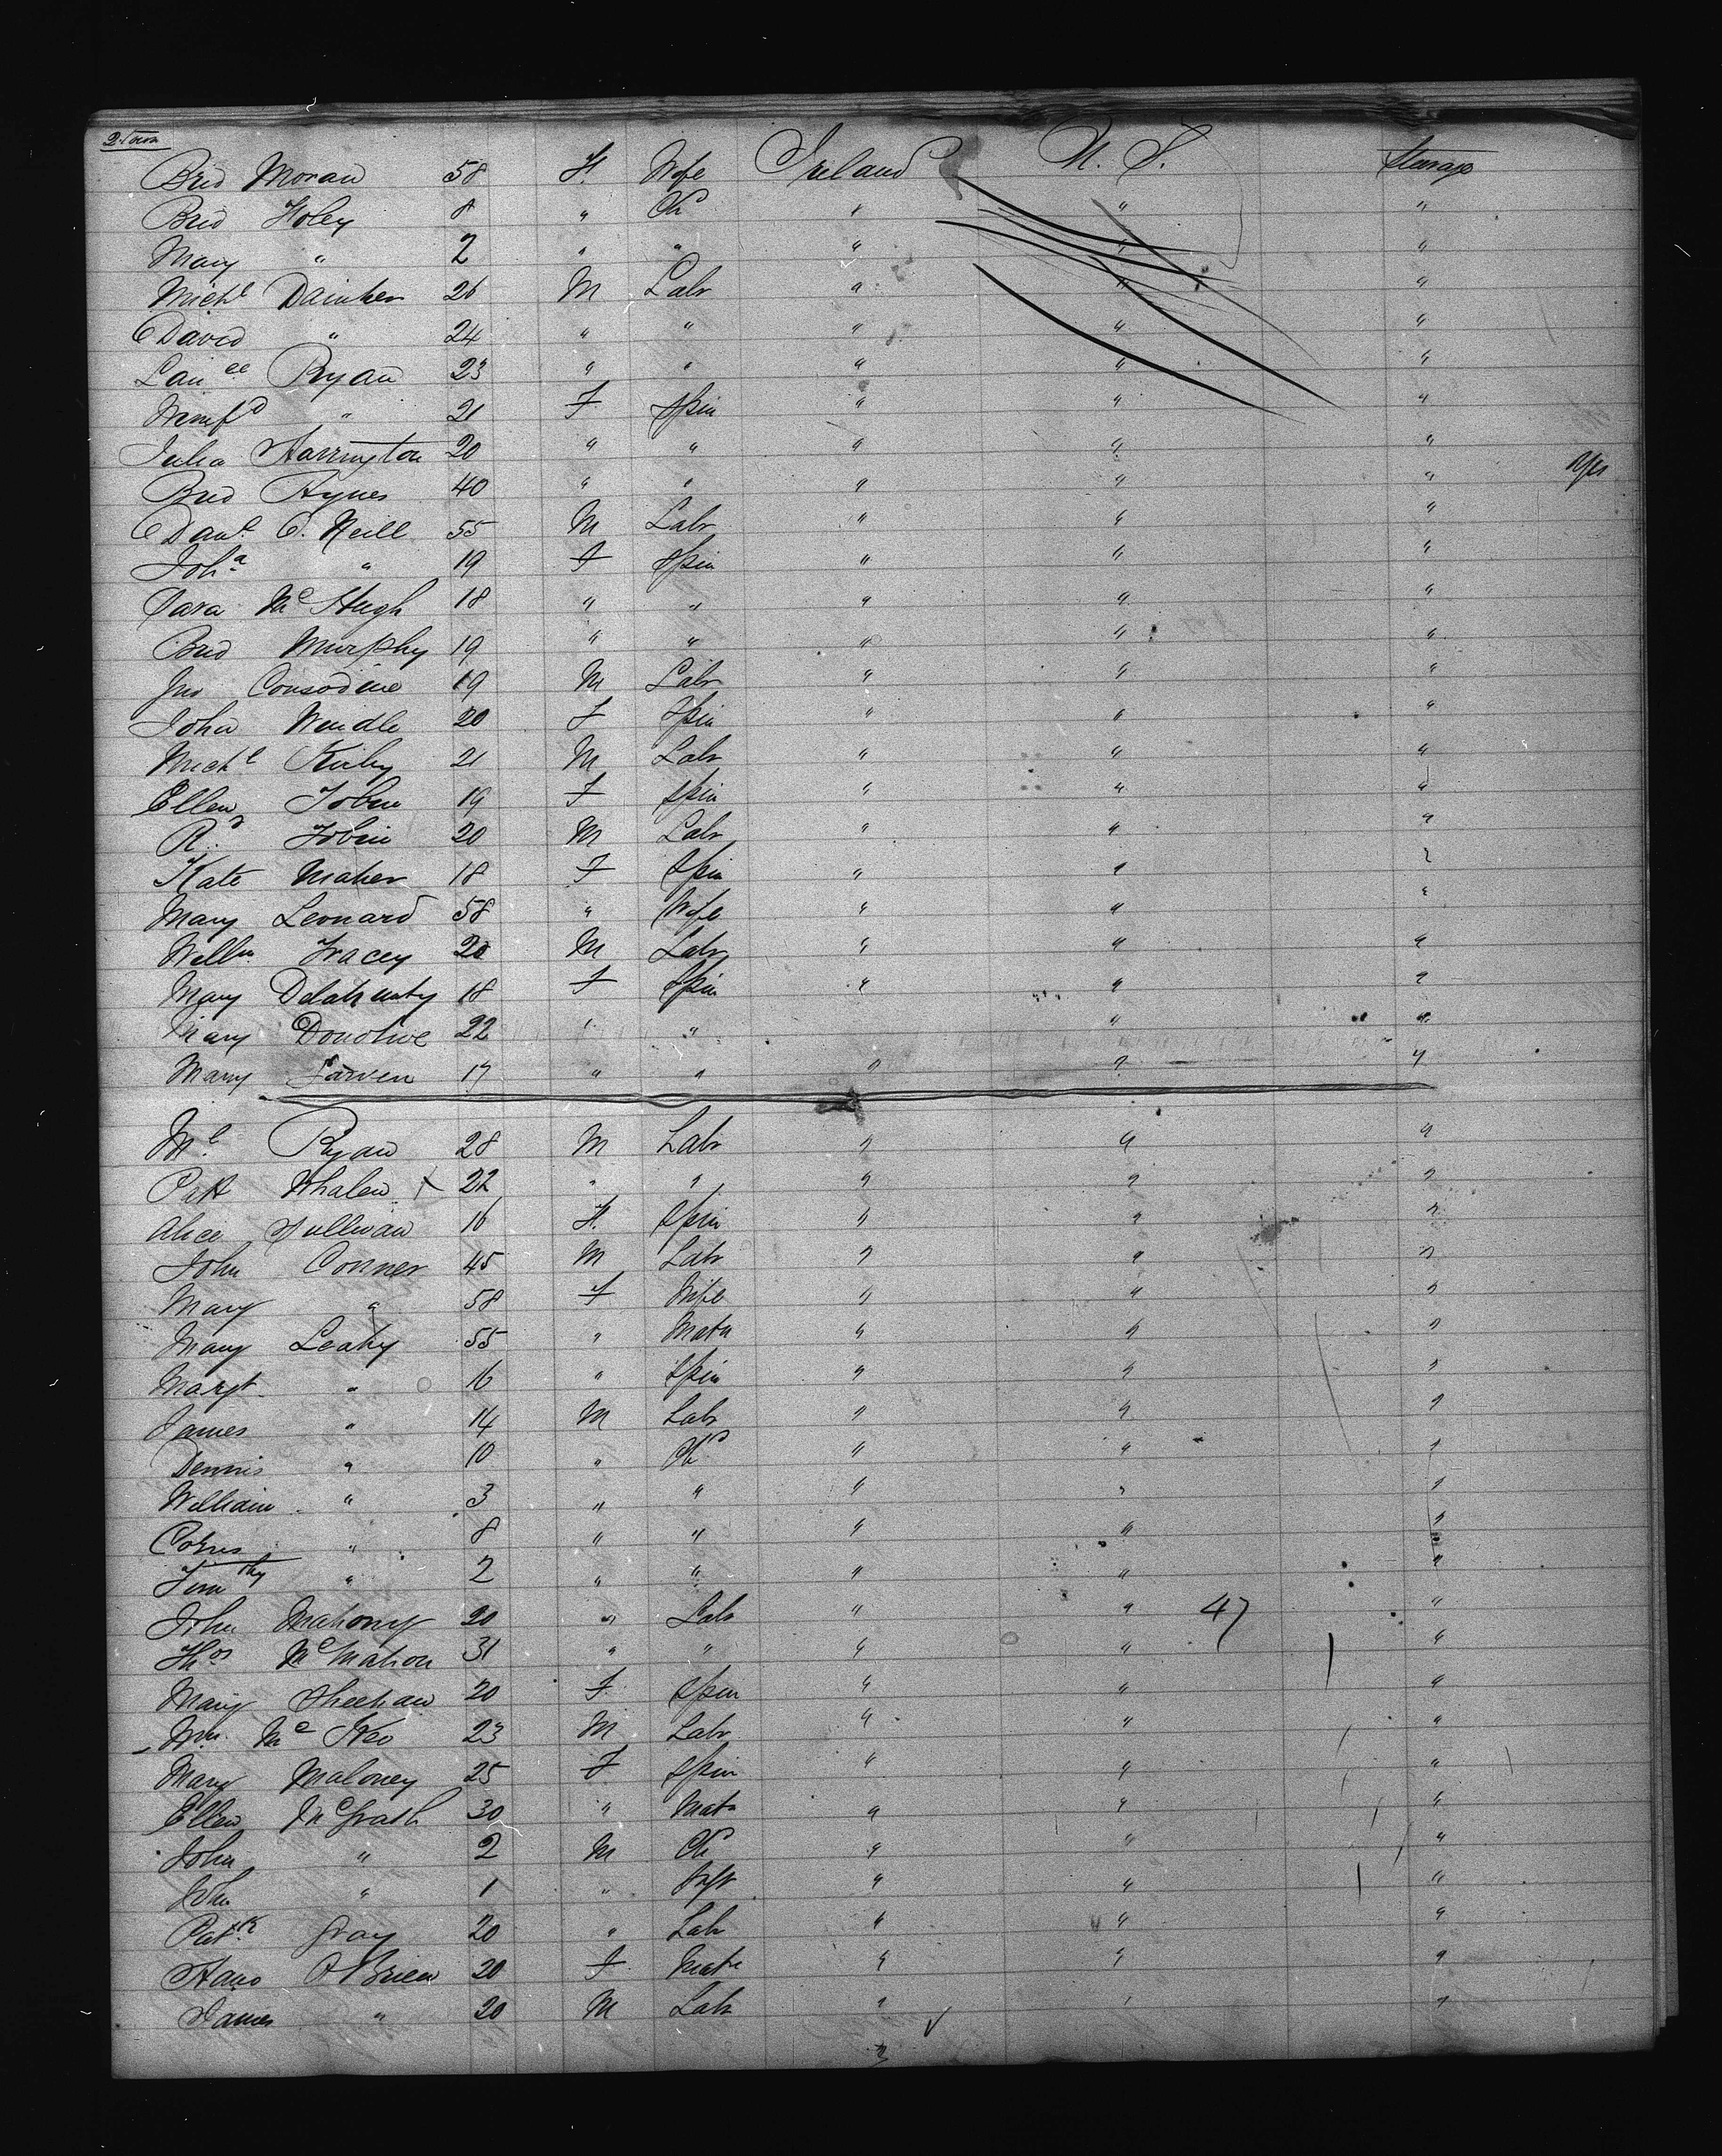 Brid Moran 58 F. Wife Ireland U. S. Steerage
Brid Foley 8 " Chd " " "
Mary " 2 " " " " "
Michl Dainher 26 M Labr " " "
David " 24 " " " " "
Lauce Ryan 23 " " " " "
Winifd " 21 F Spin " " "
Julia Harrington 20 " " " " "
Brid Hynes 40 " " " " " yes
Danl O. Neill 55 M Labr " " "
Joha " 19 F Spin " " "
Sara McHugh 18 " " " " "
Brid Murphy 19 " " " " "
Jno Consodine 19 M Labr " " "
Joha Windle 20 F Spin " " "
Michl Kirby 21 M Labr " " "
Ellen Tobin 19 F Spin " " "
Rd. Tobin 20 M Labr " " "
Kate Maher 18 F Spin " " "
Mary Leonard 58 " Wife " " "
Willm Tracey 20 M Labr " " "
Mary Delahunty 18 F Spin " " "
Mary Donohue 22 " " " "
Mary 17 " " " " "
Ml Ryan 28 M Labr " " "
Patt Whalen x 22 " " " " "
Alice Sullivan 16 F. Spin " " "
John Conner 45 M Labr " " "
Mary " 58 F Wife " " "
Mary Leahy 55 " Matn " " "
Margt " 16 " Spin " " "
James " 14 M Labr " " "
Dennis " 10 " Chd " " "
William " 3 " " " " "
Corns " 8 " " " " "
Timothy " 2 " " " " "
John Mahony 20 " Labr " " 47 "
Thos McMahon 31 " " " " "
Mary Sheehan 20 F Spin " " "
Wm. Mc Keo 23 M Labr " " "
Mary Maloney 25 F Spin " " "
Ellen McGrath 30 " Matn " " "
John " 2 M Ch " " "
John " 1 " Inft " " "
Patk Gray 20 " Labr " " "
Hano O'Brien 20 F Matn " " "
James " 20 M Labr " " "